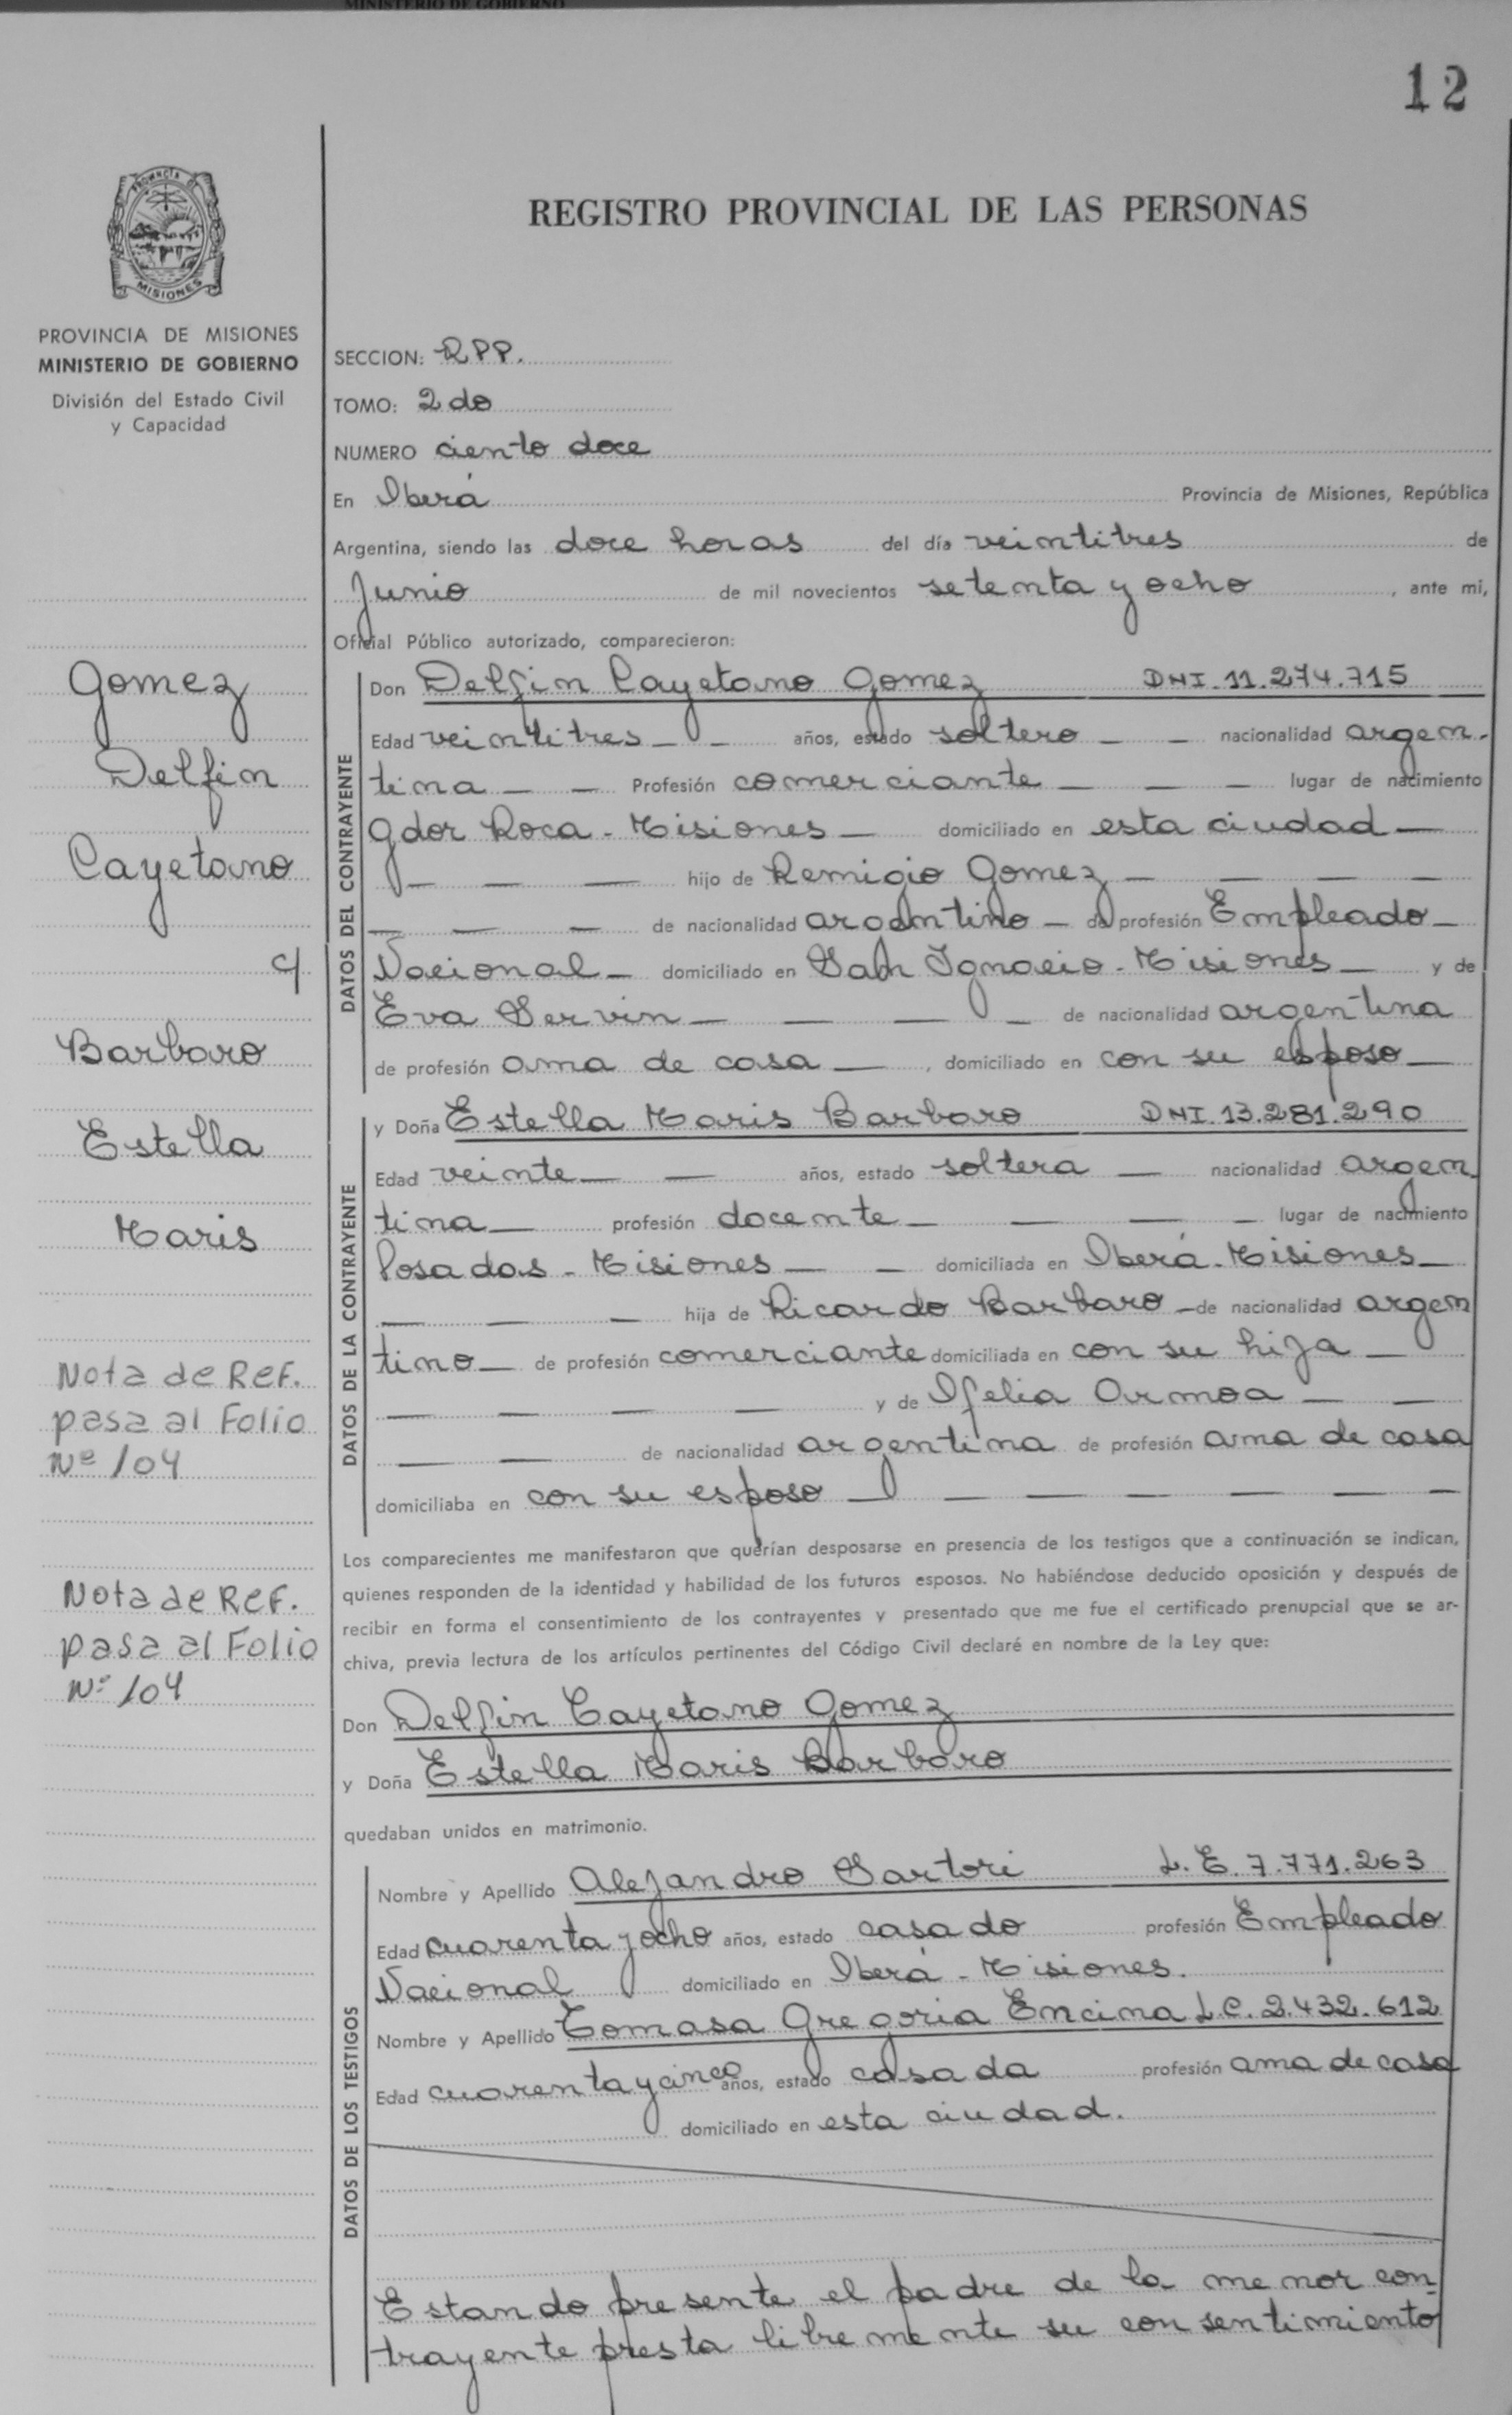 MINISTERIO DE GOBIERNO
12
PROVINCIA DE
MISIONES
PROVINCIA DE MISIONES
MINISTERIO DE GOBIERNO
División del Estado Civil
y Capacidad
Gomez
Delfin
Cayetano
c/
Barbaro
Estella
Maris
Nota de Ref.
pasa al Folio
Nº 104
Nota de Ref.
pasa al Folio
Nº 104
REGISTRO PROVINCIAL DE LAS PERSONAS
SECCION: RPP.
TOMO: 2do
NUMERO ciento doce
En Oberá Provincia de Misiones, República
Argentina, siendo las doce horas del día veintitres de
Junio de mil novecientos setenta y ocho, ante mi,
Oficial Público autorizado, comparecieron:
DATOS DEL CONTRAYENTE
Don Delfin Cayetano Gomez DNI. 11.274.715
Edad veintitres años, estado soltero nacionalidad argen-
tina Profesión comerciante lugar de nacimiento
Gdor Roca - Misiones domiciliado en esta ciudad
hijo de Remigio Gomez
de nacionalidad argentino de profesión Empleado
Nacional domiciliado en San Ignacio - Misiones y de
Eva Servin de nacionalidad argentina
de profesión ama de casa, domiciliado en con su esposo
DATOS DE LA CONTRAYENTE
y Doña Estella Maris Barbaro DNI. 13.281.290
Edad veinte años, estado soltera nacionalidad argen
tina profesión docente lugar de nacimiento
Posadas - Misiones domiciliada en Oberá - Misiones
hija de Ricardo Barbaro de nacionalidad argen
tino de profesión comerciante domiciliada en con su hija
y de Ofelia Armoa
de nacionalidad argentina de profesión ama de casa
domiciliaba en con su esposo
Los comparecientes me manifestaron que querían desposarse en presencia de los testigos que a continuación se indican,
quienes responden de la identidad y habilidad de los futuros esposos. No habiéndose deducido oposición y después de
recibir en forma el consentimiento de los contrayentes y presentado que me fue el certificado prenupcial que se ar-
chiva, previa lectura de los artículos pertinentes del Código Civil declaré en nombre de la Ley que:
Don Delfin Cayetano Gomez
y Doña Estella Maris Barbaro
quedaban unidos en matrimonio.
DATOS DE LOS TESTIGOS
Nombre y Apellido Alejandro Sartori L.E. 7.771.263
Edad cuarenta y ocho años, estado casado profesión Empleado
Nacional domiciliado en Oberá - Misiones.
Nombre y Apellido Tomasa Gregoria Encina L.C. 2.432.612
Edad cuarenta y cinco años, estado casada profesión ama de casa
domiciliado en esta ciudad.
Estando presente el padre de la menor con-
trayente presta libremente su consentimiento